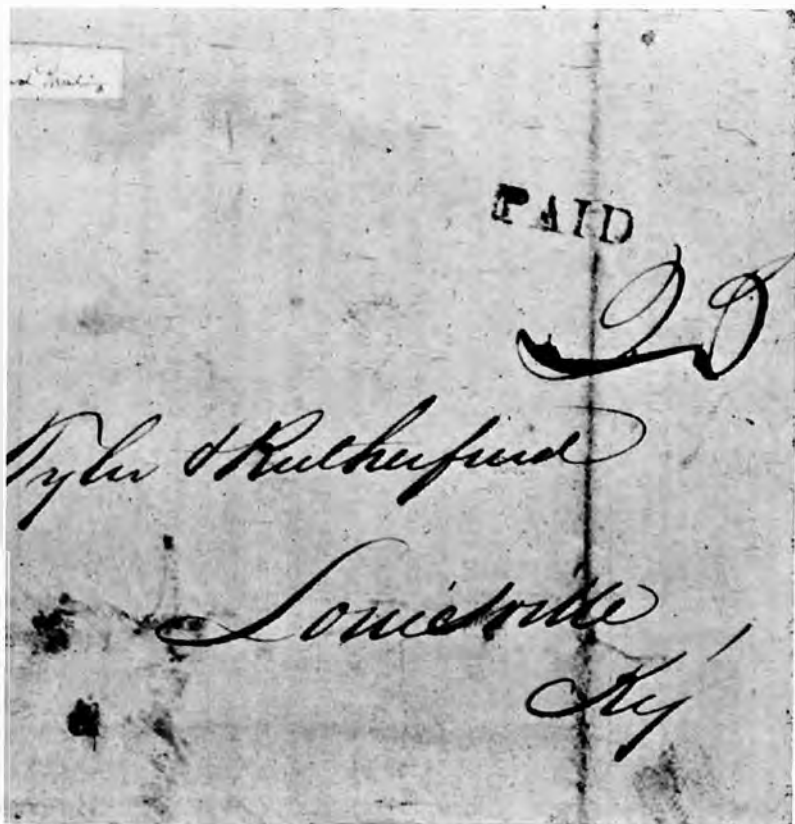 PAID
20
Tyler & Rutherfurd
Louisville
Ky